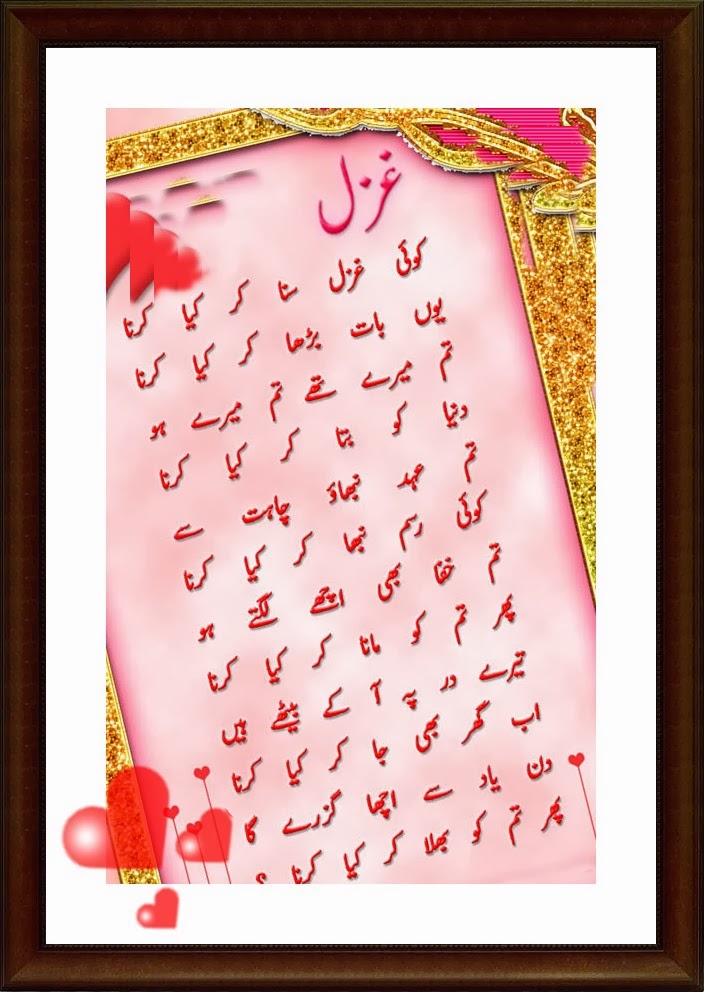 غزل
کوئی غزل سنا کر کیا کرنا
یوں بات بڑھا کر کیا کرنا
تم میرے تھے تم میرے ہو
دنیا کو بتا کر کیا کرنا
تم عہد نبھاؤ چاہت سے
کوئی رسم نبھا کر کیا کرنا
تم خفا بھی اچھے لگتے ہو
پھر تم کو مانا کر کیا کرنا
تیرے در پہ آ کے بیٹھے ہیں
اب گھر بھی جا کر کیا کرنا
دن یاد سے اچھا گزرے گا
پھر تم کو بھلا کر کیا کرنا ؟